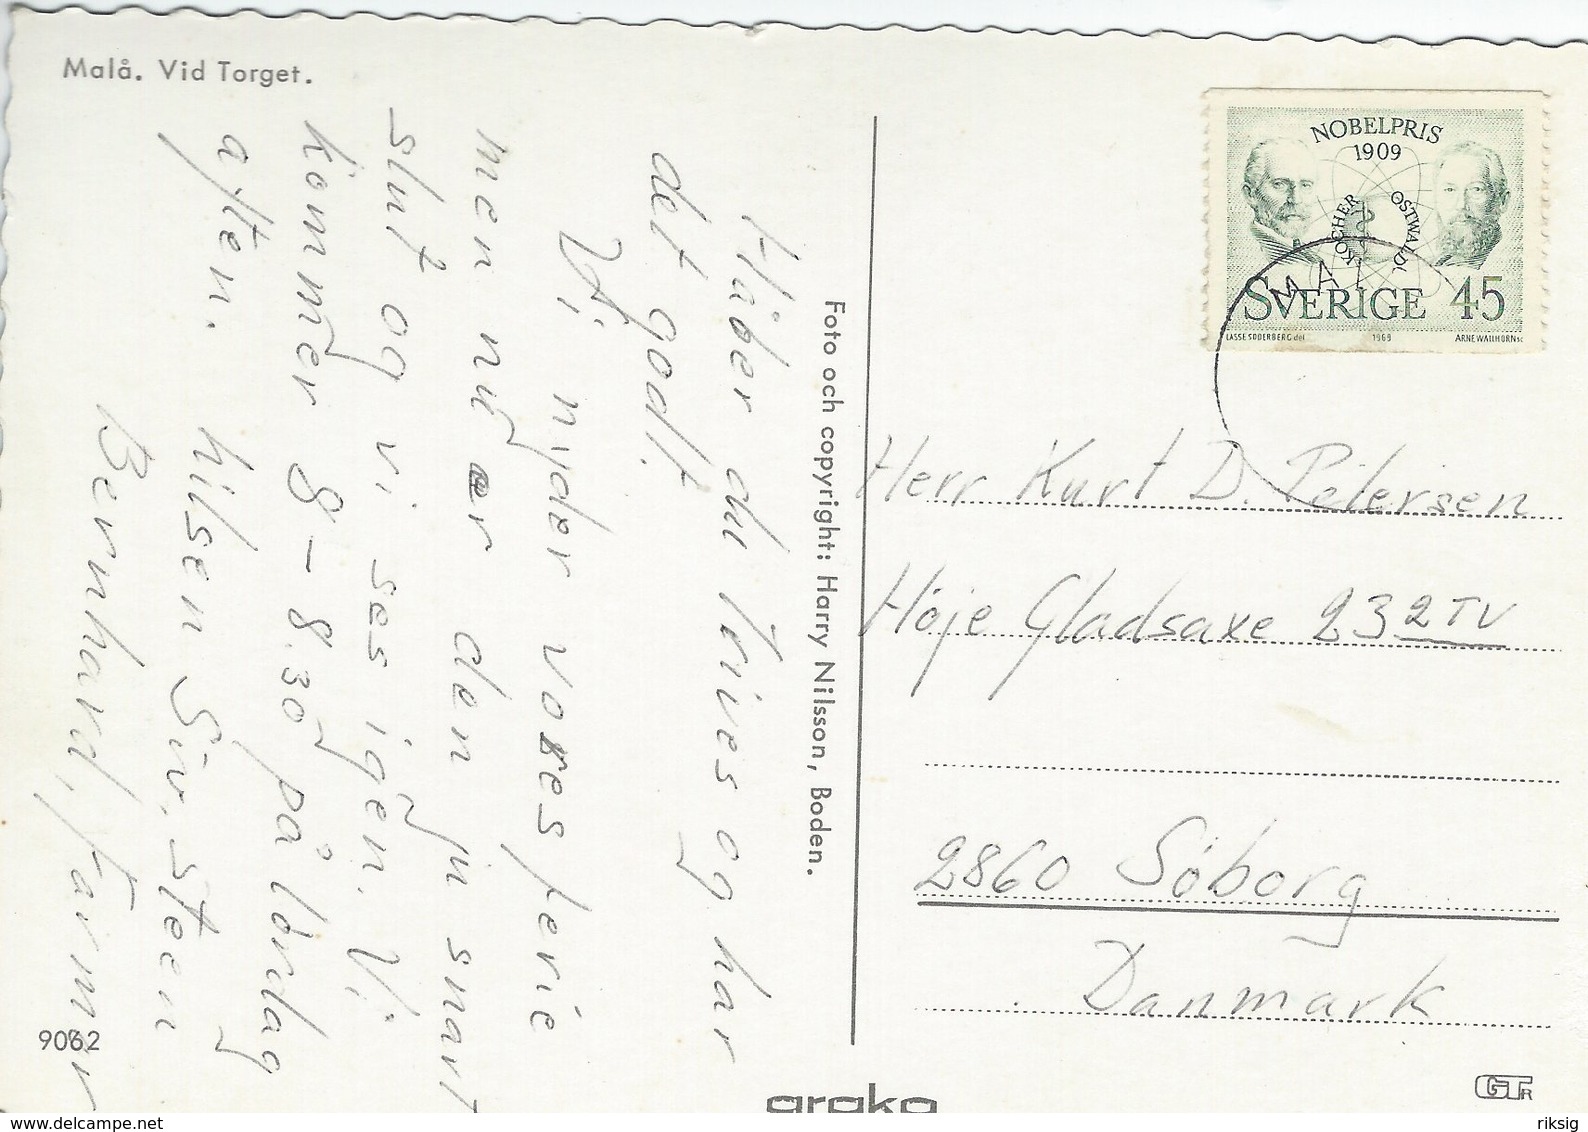 Malå. Vid Torget.
Håber du trives og har
det godt.
Vi nyder vores ferie
men nu er den ju snart
slut og vi ses igen. Vi
kommer 8 - 8.30 på lördag
aften.
hilsen Siv, Steen
Bernhard, Farmor
9062
Foto och copyright: Harry Nilsson, Boden.
NOBELPRIS
1909
KOCHER
OSTWALD
SVERIGE 45
LASSE SÖDERBERG del 1969 ARNE WALLHORN sc
MAL
Herr Kurt D. Petersen
Höje Gladsaxe 23 2 TV
2860 Söborg
Danmark
grako
GTR
www.delcampe.net
riksig